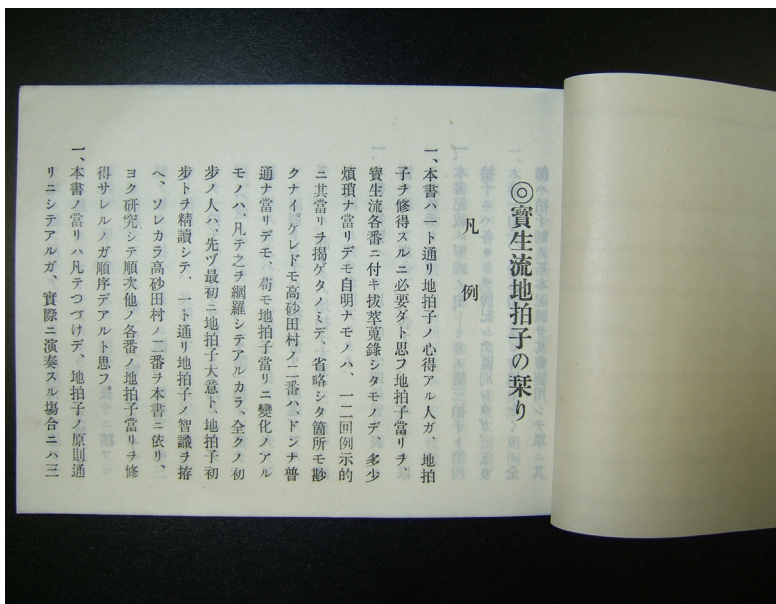 ◎寶生流地拍子の栞り
凡例
一、本書ハ一ト通リ地拍子ノ心得アル人ガ、地拍
子ヲ修得スルニ必要ダト思フ地拍子當リヲ、
寶生流各番ニ付キ拔萃蒐錄シタモノデ、多少
煩瑣ナ當リデモ自明ナモノハ、一二回例示的
ニ其當リヲ揭ゲタノミデ、省略シタ箇所モ尠
クナイ。ケレドモ高砂田村ノ二番ハ、ドンナ普
通ナ當リデモ、苟モ地拍子當リニ變化ノアル
モノハ、凡テ之ヲ網羅シテアルカラ、全クノ初
步ノ人ハ、先ヅ最初ニ地拍子大意ト、地拍子初
步トヲ精讀シテ、一ト通リ地拍子ノ智識ヲ拵
ヘ、ソレカラ高砂田村ノ二番ヲ本書ニ依リ、
ヨク硏究シテ順次他ノ各番ノ地拍子當リヲ修
得サレルノガ順序デアルト思フ。
一、本書ノ當リハ凡テつづけデ、地拍子ノ原則通
リニシテアルガ、實際ニ演奏スル塲合ニハ三